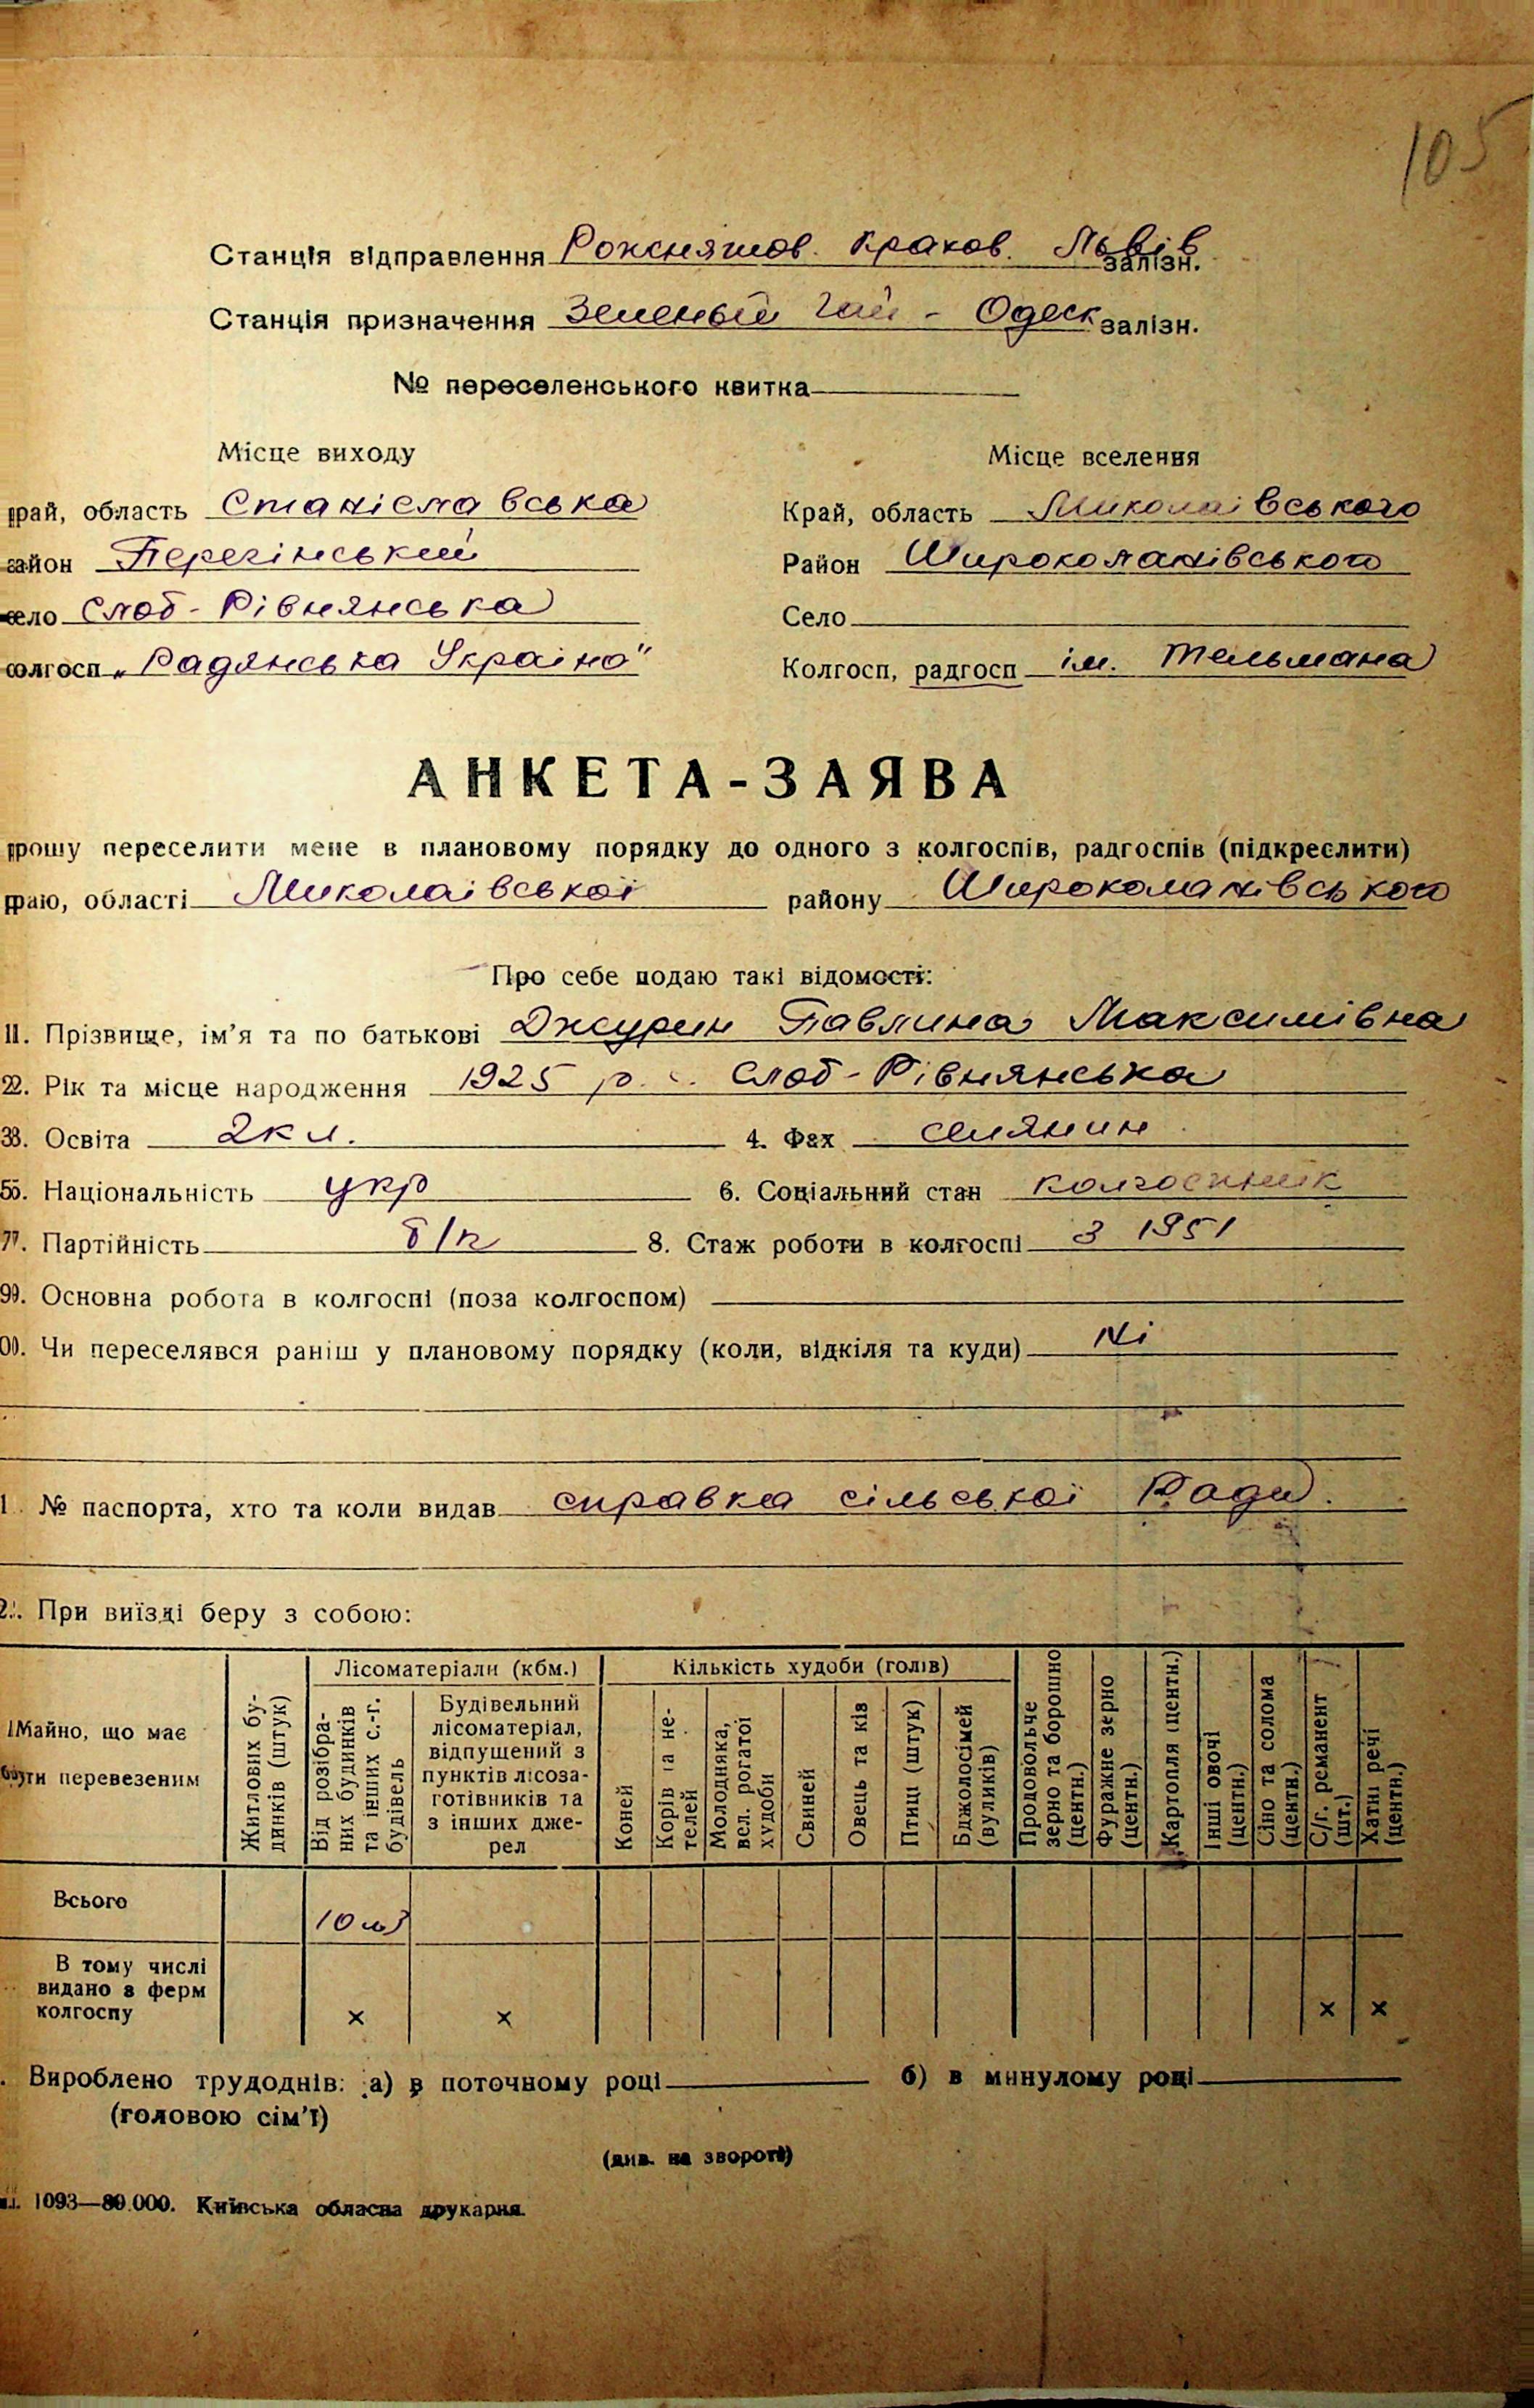 105
Станція відправлення Рожнятов. Краков. Львів залізн.
Станція призначення Зеленый Гай - Одеск залізн.
№ переселенського квитка
Місце виходу
Місце вселення
край, область Станіславська
Край, область Миколаівського
район Перегінський
Район Широколанівського
село Слоб-Рівнянська
Село
колгосп „Радянська Украіна"
Колгосп, радгосп ім. Тельмана
АНКЕТА-ЗАЯВА
прошу переселити мене в плановому порядку до одного з колгоспів, радгоспів (підкреслити)
краю, області Миколаівськоі району Широколанівського
Про себе подаю такі відомості:
1. Прізвище, ім'я та по батькові Джурин Павлина Максимівна
2. Рік та місце народження 1925 р. с. Слоб-Рівнянська
3. Освіта 2 кл. 4. Фах селянин
5. Національність укр 6. Соціальний стан колгоспник
7. Партійність б/п 8. Стаж роботи в колгоспі З 1951
9. Основна робота в колгоспі (поза колгоспом)
0. Чи переселявся раніш у плановому порядку (коли, відкіля та куди) Ні
1. № паспорта, хто та коли видав справка сільськоі Ради.
2. При виїзді беру з собою:
Майно, що має бути перевезеним
Житлових будинків (штук)
Лісоматеріали (кбм.)
Від розібраних будинків та інших с.-г. будівель
Будівельний лісоматеріал, відпущений з пунктів лісозаготівників та з інших джерел
Кількість худоби (голів)
Коней
Корів та нетелей
Молодняка, вел. рогатої худоби
Свиней
Овець та ків
Птиці (штук)
Бджолосімей (вуликів)
Продовольче зерно та борошно (центн.)
Фуражне зерно (центн.)
Картопля (центн.)
Інші овочі (центн.)
Сіно та солома (центн.)
С/г. реманент (шт.)
Хатні речі (центн.)
Всього 10 м3
В тому числі видано з ферм колгоспу × × × ×
. Вироблено трудоднів: а) в поточному році б) в минулому році
(головою сім'ї)
(див. на звороті)
1093—80.000. Київська обласна друкарня.